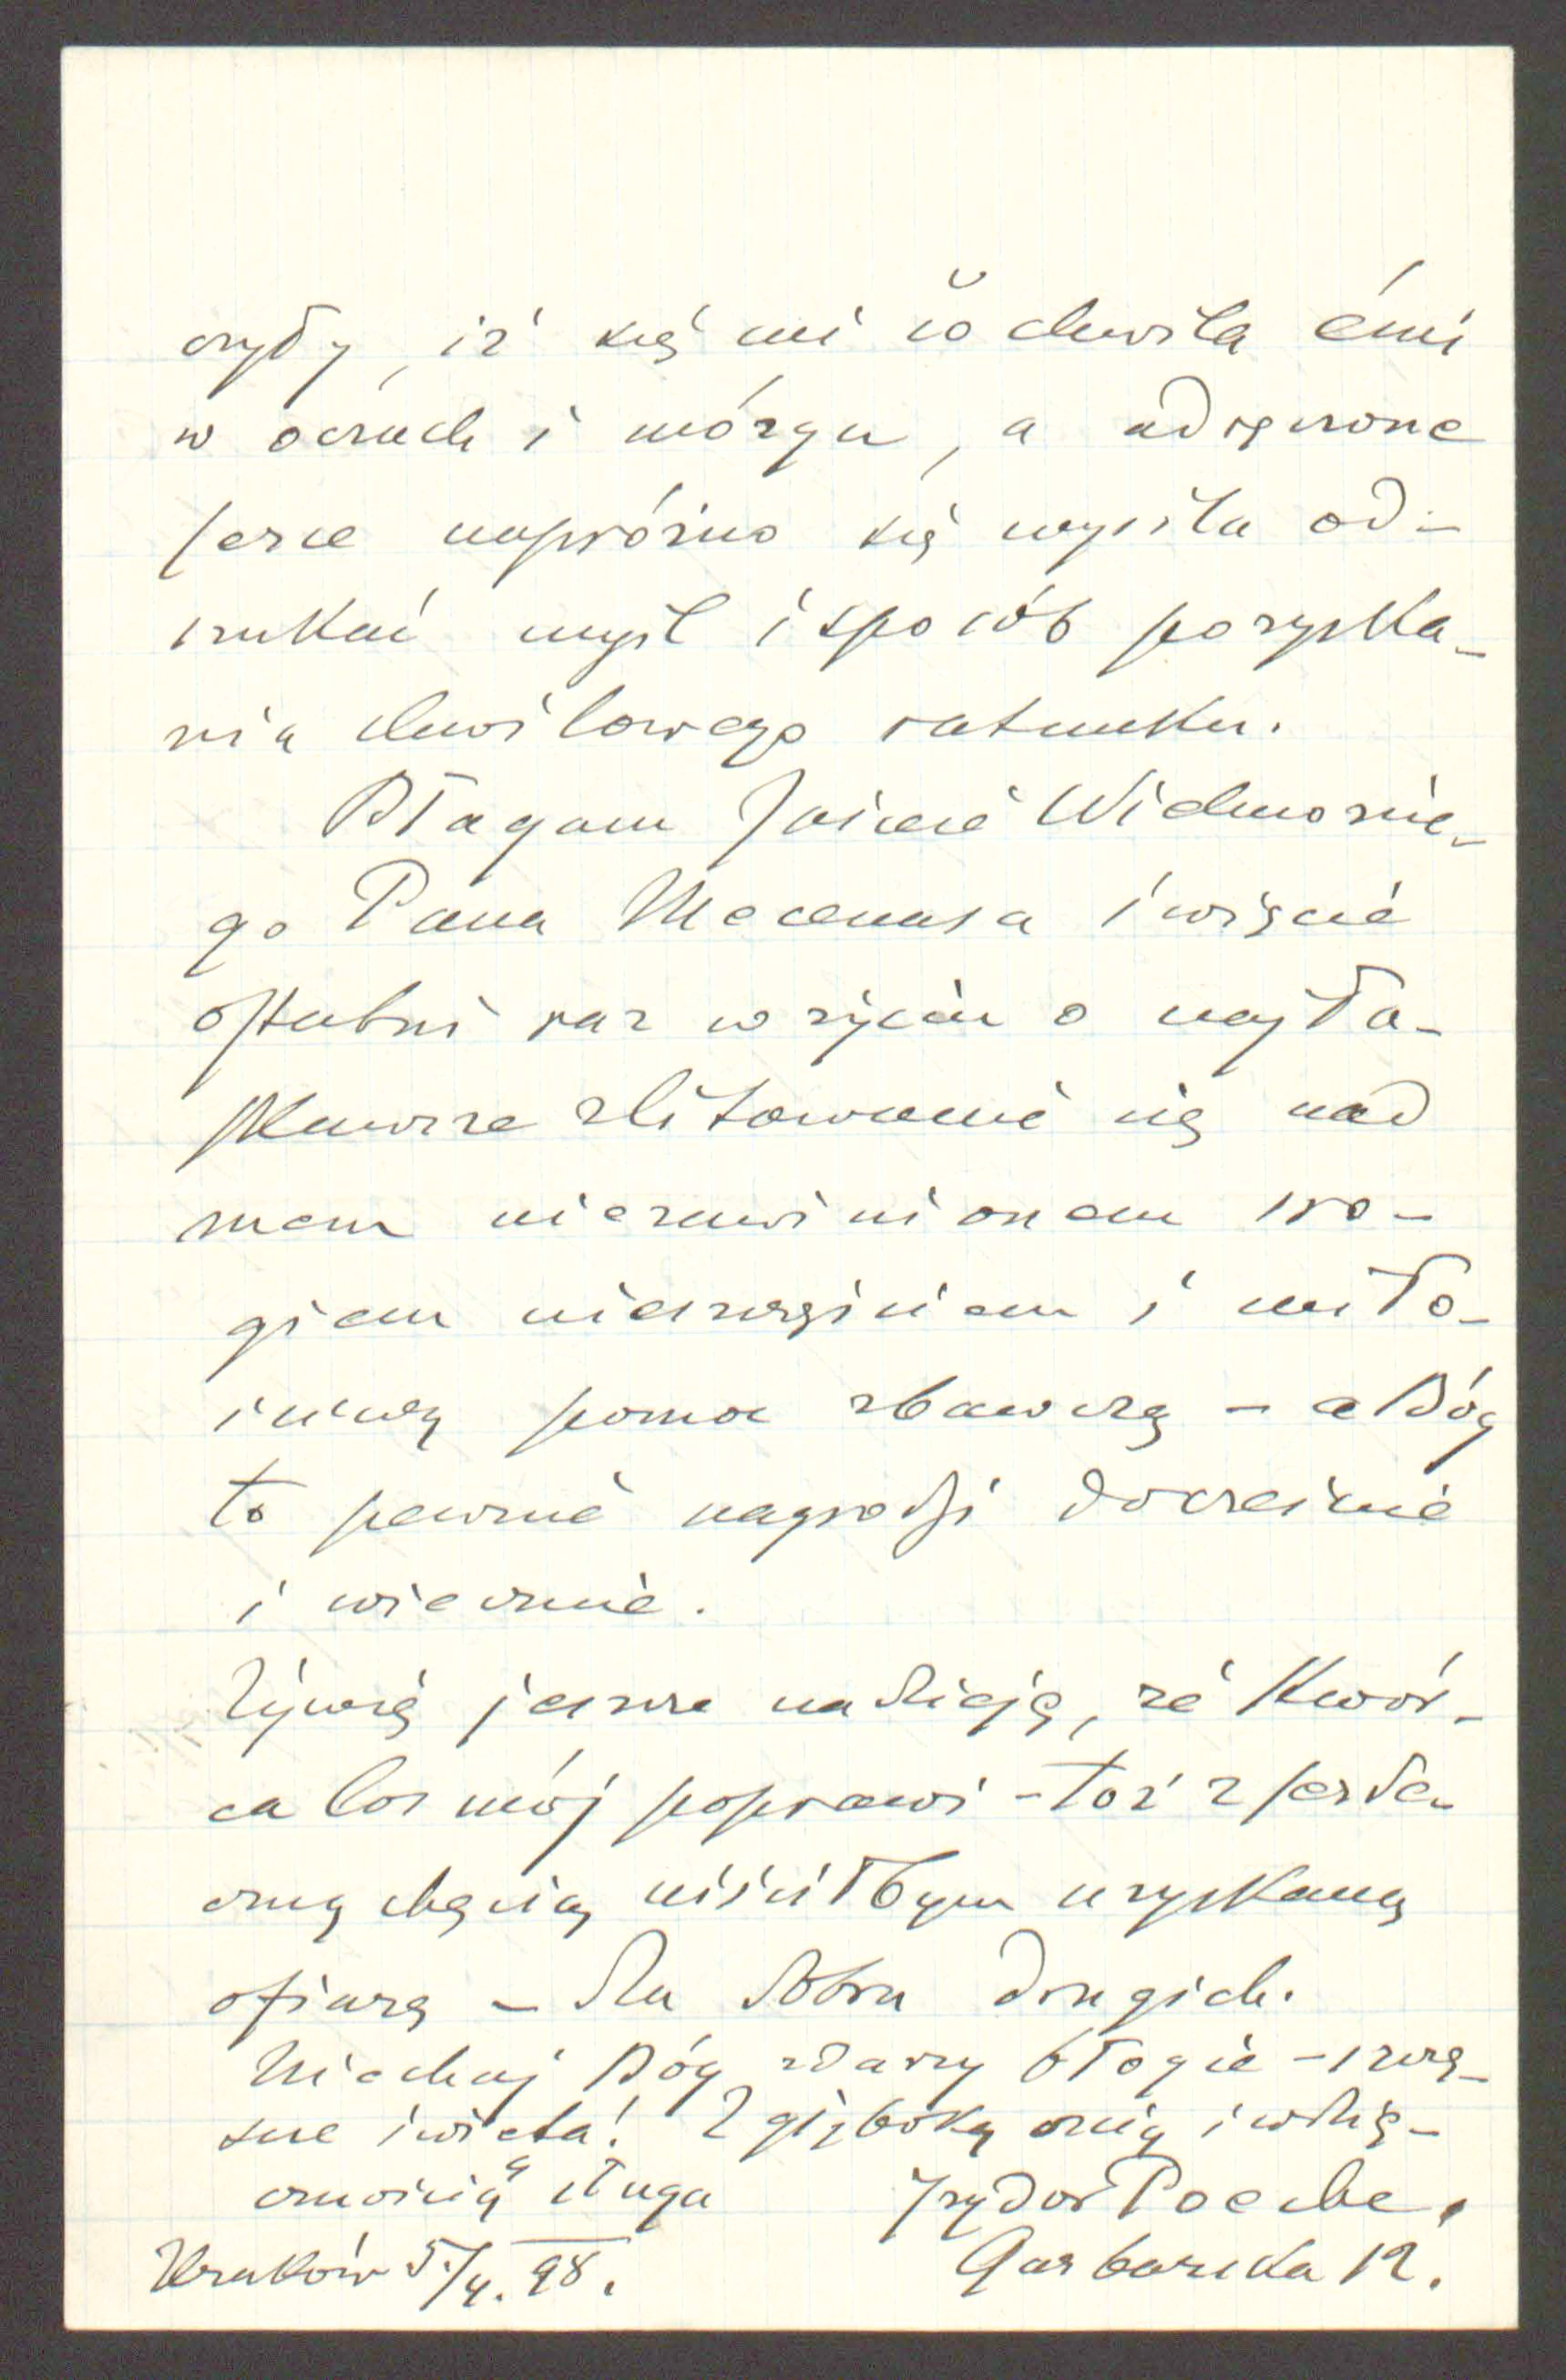 czyby, iż się mi co chwila ćmi
w oczach i mózgu, a udręczone
serce napróżno się wysila od-
szukać myśl i sposób pozyska-
nia chwilowego ratunku.
Błagam Jaśnie Wielmożne-
go Pana Mecenasa i więcie
ostatni raz w życiu o najła-
skawsze zlitowanie się nad
mem niezawinionem sro-
giem nieszczęściem i miło-
sierną pomoc zbawczą – a Bóg
to pewnie nagrodzi docześnie
i wiecznie.
Żywię jeszcze nadzieję, że Stwór-
ca los mój poprawi – toż z serde-
czną chęcią uiściłbym uzyskaną
ofiarę – dla dobra drugich.
Niechaj Bóg zdarzy błogie – szczę-
sne święta! Z głęboką czcią i wdzię-
cznością sługa Izydor Poeche.
Kraków 5/4. 98. Garbarska 12.